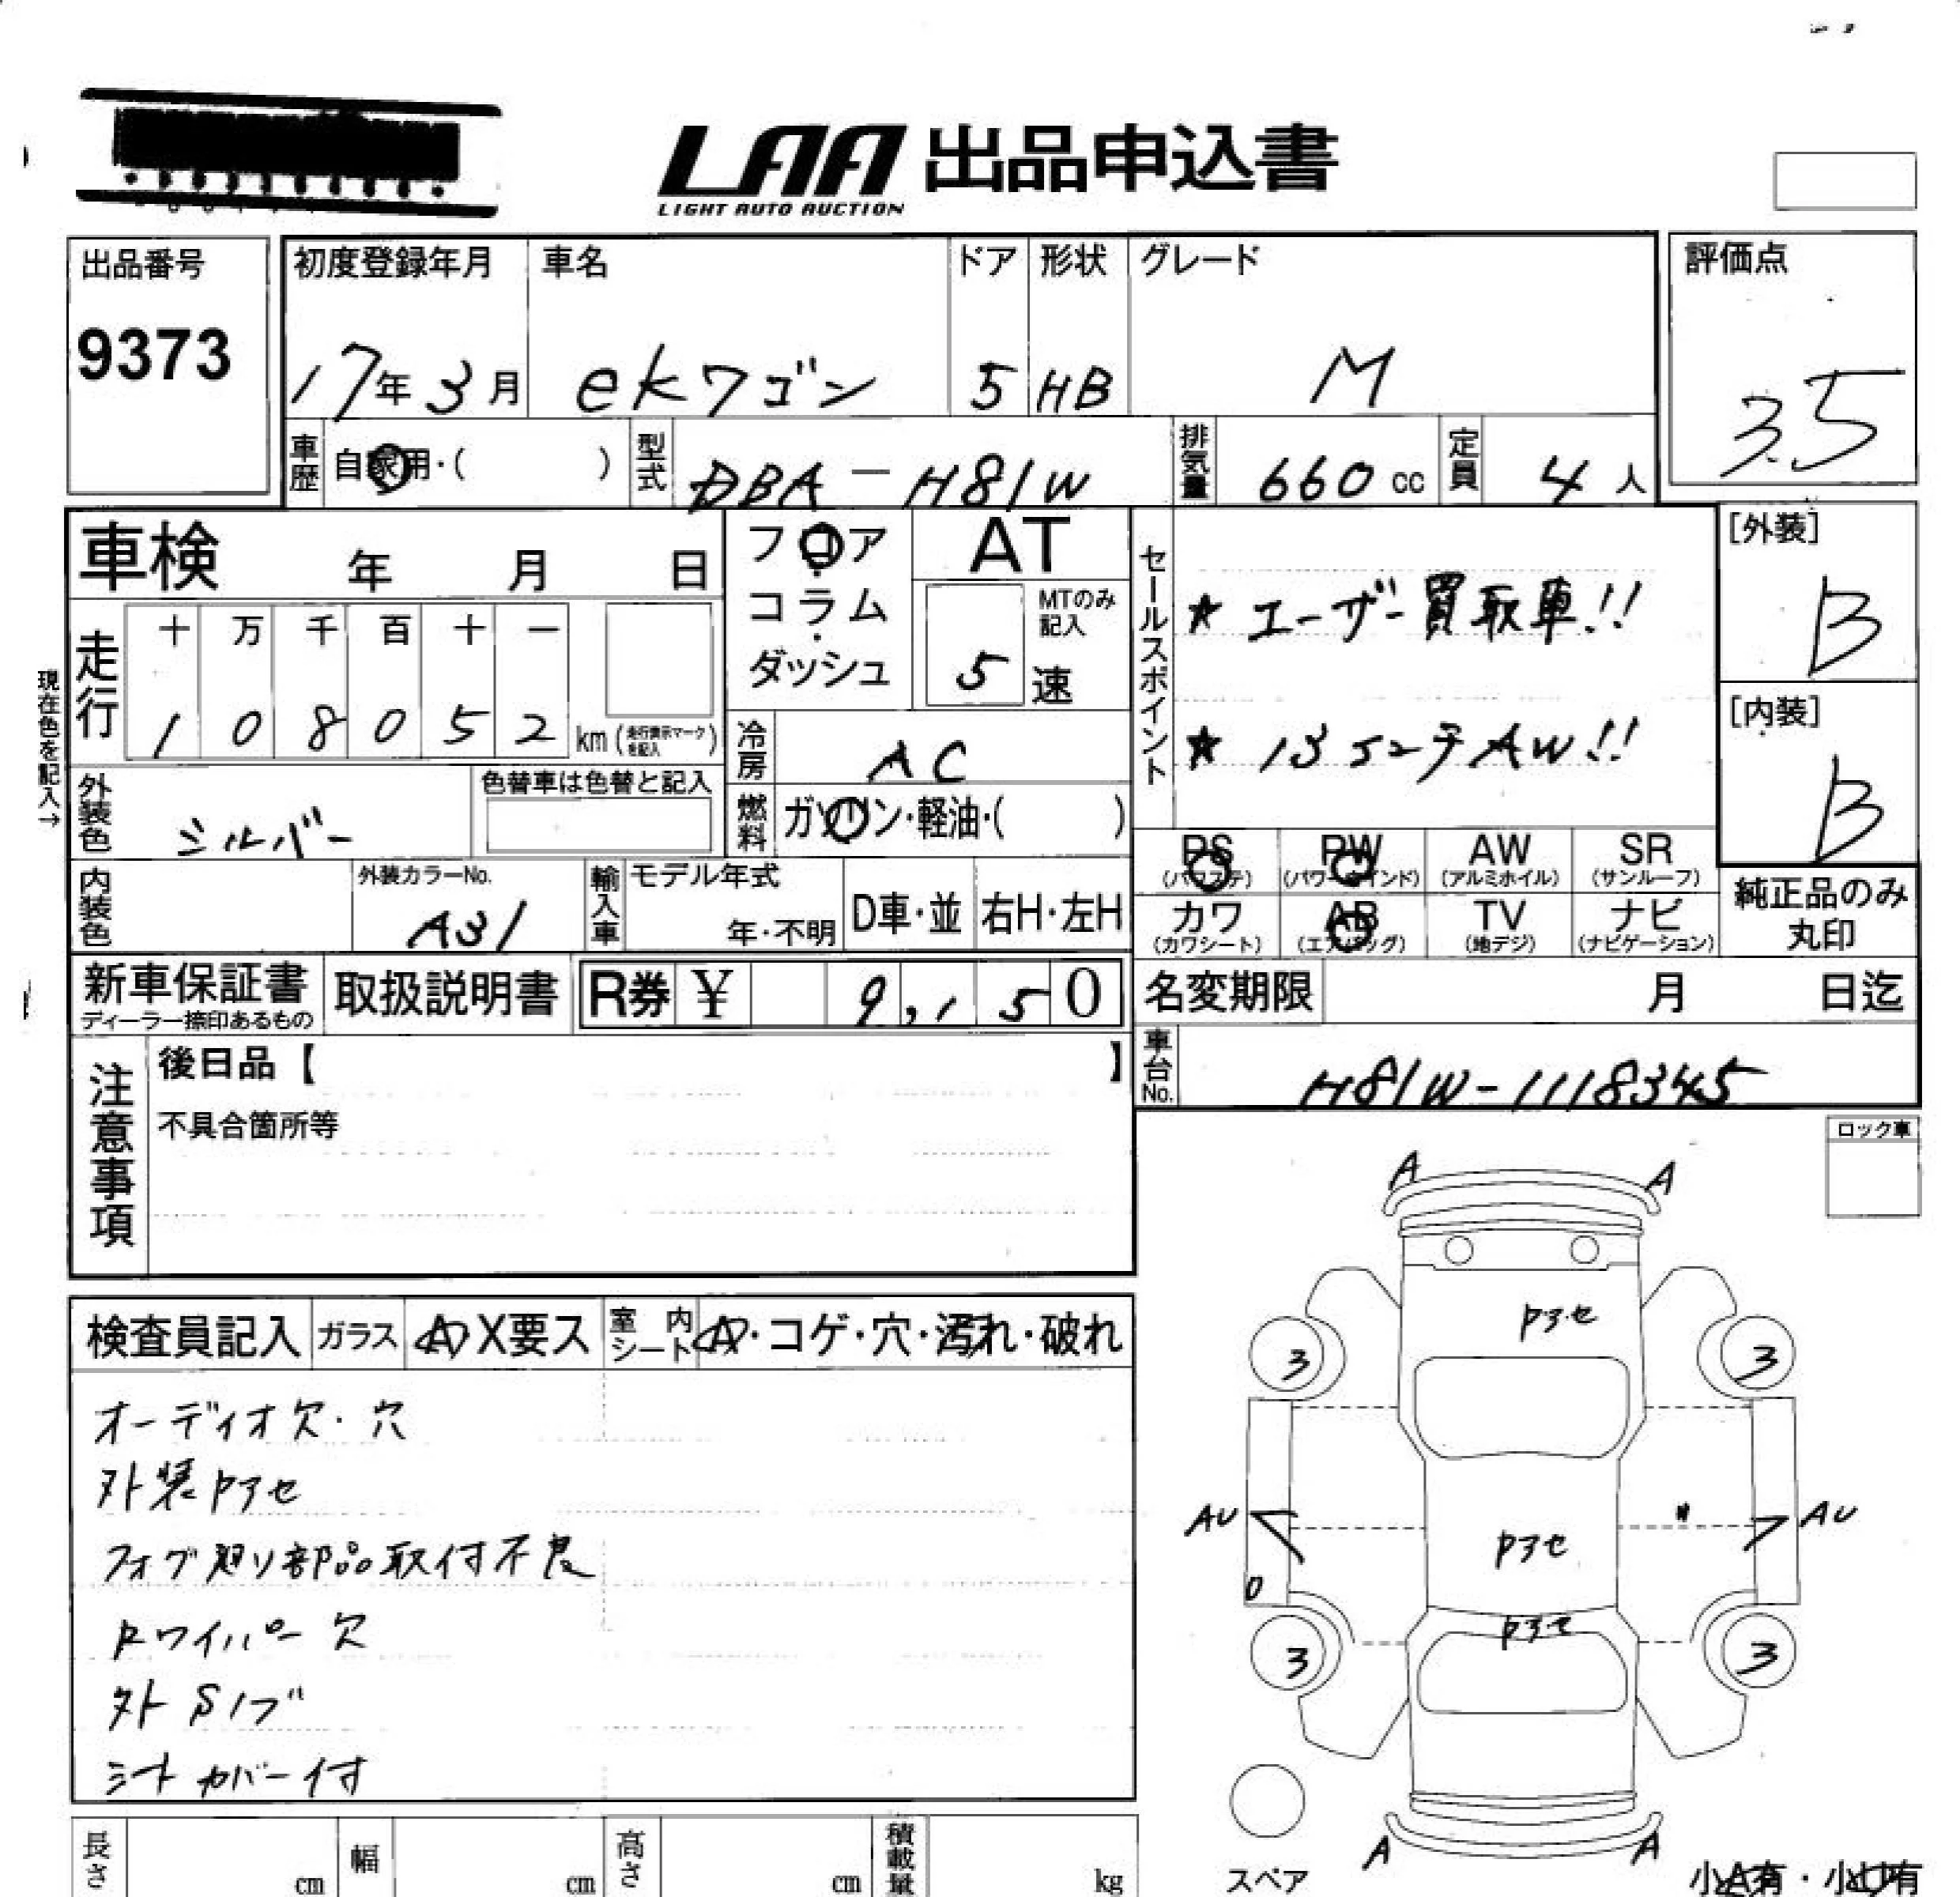 LAA 出品申込書
LIGHT AUTO AUCTION
出品番号
9373
初度登録年月
17年3月
車名
ekワゴン
ドア
5
形状
HB
グレード
M
評価点
3.5
車歴
自家用・( )
型式
DBA-H81W
排気量
660 cc
定員
4人
車検 年 月 日
フロア・コラム・ダッシュ
AT
MTのみ記入
5速
セールスポイント
★ユーザー買取車!!
★13インチAW!!
[外装]
B
[内装]
B
現在色を記入→
走行
十 万 千 百 十 一
1 0 8 0 5 2 km (走行表示マークを記入)
冷房
AC
外装色
シルバー
色替車は色替と記入
燃料
ガソリン・軽油・( )
PS (パワステ)
PW (パワーウインド)
AW (アルミホイル)
SR (サンルーフ)
カワ (カワシート)
AB (エアバッグ)
TV (地デジ)
ナビ (ナビゲーション)
純正品のみ丸印
内装色
外装カラーNo.
A31
輸入車
モデル年式
年・不明
D車・並
右H・左H
新車保証書
ディーラー捺印あるもの
取扱説明書
R券 ¥ 9,150
名変期限 月 日迄
車台No.
H81W-1118345
注意事項
後日品【 】
不具合箇所等
ロック車
検査員記入
ガラス
A X要ス
室内シート
A・コゲ・穴・汚れ・破れ
オーディオ欠・穴
外装アセ
フォグ廻り部品取付不良
Rワイパー欠
外
シートカバー付
A A
アセ
3 3
AU AU
アセ
アセ
3 3
A A
スペア
長さ cm
幅 cm
高さ cm
積載量 kg
小A有・小U有